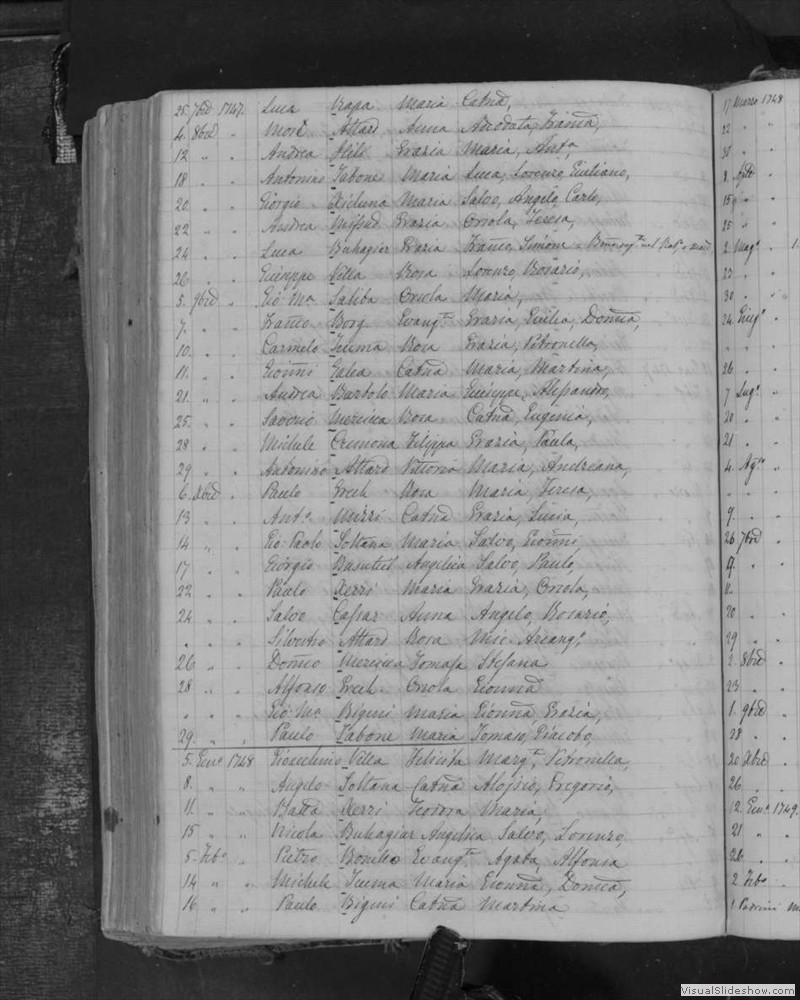 25. 7bre 1747. Luca Vrapa Maria Catña,
4. 8bre " Attard Anna Adeodata,
12 " " Andrea Grazia Maria, Anta,
18 " " Antonino Tabone Maria Luca, Lorenzo, Giuliano,
20 " " Giorgio Xicluna Maria Salvo, Angelo, Carlo,
22 " " Andrea Mifsud Grazia Orsola, Teresa,
24 " " Luca Buhagiar Grazia Franco, Simone
26 " " Giuseppe Vella Rosa Lorenzo, Rosario,
5. 9bre " Gio Ma Saliba Orsola Maria,
7. " " Franco Borg Evangta Grazia, Giulia, Domca,
10. " " Carmelo Teuma Rosa Grazia, Petronella,
11. " " Gioñni Galea Catña Maria, Martina,
21 " " Andrea Bartolo Maria Giuseppe, Alessandro,
25. " " Saverio Mercieca Rosa Catña, Eugenia,
28 " " Michele Cremona Filippa Grazia, Paula,
29 " " Antonino Attard Vittoria Maria, Andreana,
6. Xbre " Paulo Grech Rosa Maria, Teresa,
13 " " Anto Mizzi Catña Grazia, Lucia,
14 " " Gio Paolo Soltana Maria Salvo, Gioñni,
17 " " Giorgio Basuttil Angelica Salvo, Paulo,
22 " " Paulo Xerri Maria Grazia, Orsola,
24 " " Salvo Cassar Anna Angelo, Rosario,
" " " Silvestro Attard Rosa Mic. Arcango
26 " " Domco Mercieca Tomasa Stefana
28 " " Alfonso Grech Orsola Gionna
" " " Gio Ma Bigeni Maria Gionna, Grazia,
29. " " Paulo Tabone Maria Tomaso, Giacobo,
5. Genro 1748 Gioachino Vella Felicita Margta, Petronella,
8. " " Angelo Soltana Catña Aloisio, Gregorio,
11. " " Batta Xerri Teodora Maria,
15 " " Nicola Buhagiar Angelica Salvo, Lorenzo,
5. Febo " Pietro Bonello Evangta Agata, Alfonsa
14 " " Michele Teuma Maria Gionna, Domca,
16 " " Paulo Bigeni Catña Martina
17 Marzo 1748
22 " "
30 " "
15 " "
25 " "
2. Mago "
23 " "
30 " "
24. Giugo "
" " "
26 " "
7 Lugo "
20 " "
21 " "
4. Ago "
" " "
9. " "
26 7bre "
9. " "
11. " "
20 " "
29 " "
2. 8bre "
23 " "
1. 9bre "
28 " "
20 Xbre "
26 " "
12. Geno 1749.
21 " "
26 " "
2 Febo "
VisualSlideshow.com